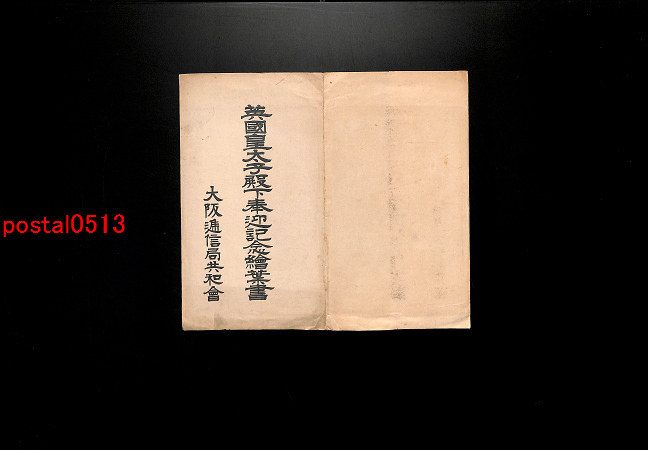 英國皇太子殿下奉迎記念繪葉書
大阪逓信局共和會
postal0513